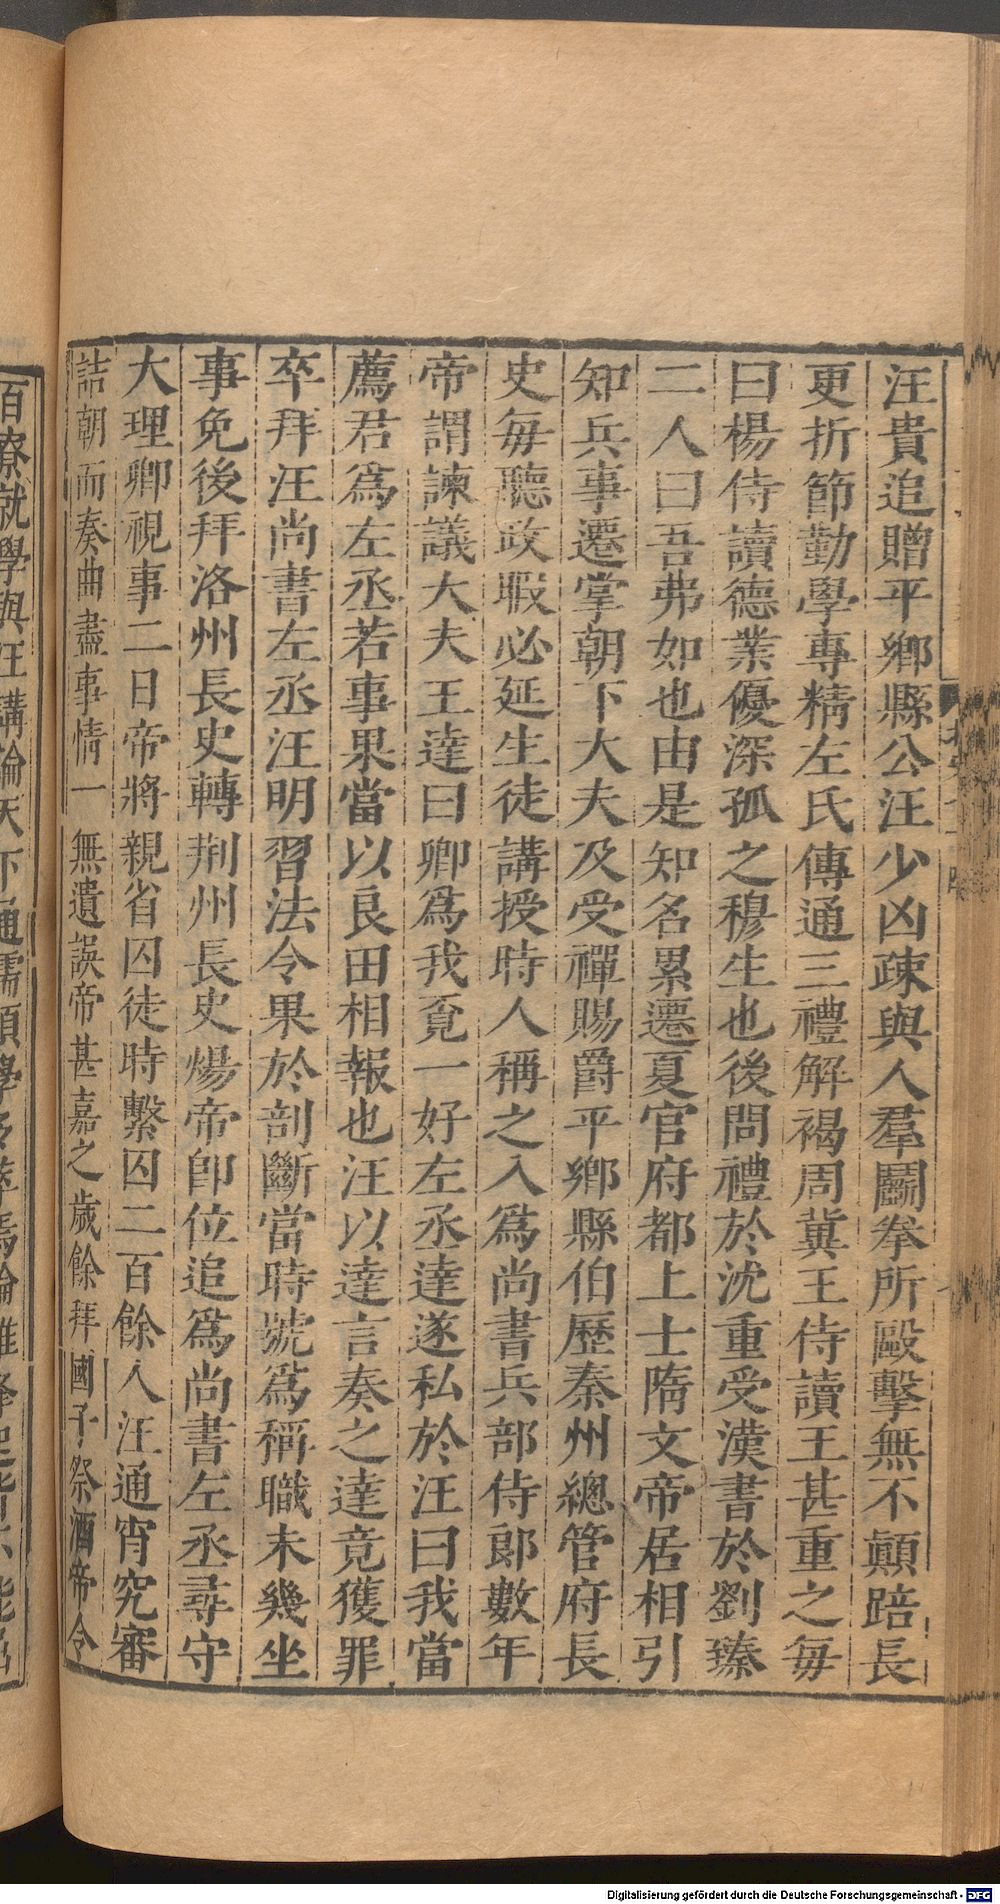 汪貴追贈平鄉縣公汪少凶疎與人羣鬭拳所毆擊無不顚踣長
更折節勤學專精左氏傳通三禮解褐周冀王侍讀王甚重之毎
曰楊侍讀德業優深孤之穆生也後問禮於沈重受漢書於劉臻
二人曰吾弗如也由是知名累遷夏官府都上士隋文帝居相引
知兵事遷掌朝下大夫及受禪賜爵平鄉縣伯歷秦州總管府長
史毎聽政暇必延生徒講授時人稱之入爲尚書兵部侍郎數年
帝謂諫議大夫王達曰卿爲我覓一好左丞達遂私於汪曰我當
薦君爲左丞若事果當以良田相報也汪以達言奏之達竟獲罪
卒拜汪尚書左丞汪明習法令果於剖斷當時號爲稱職未幾坐
事免後拜洛州長史轉荆州長史煬帝卽位追爲尚書左丞尋守
大理卿視事二日帝將親省囚徒時繫囚二百餘人汪通宵究審
詰朝而奏曲盡事情一無遺誤帝甚嘉之歲餘拜國子祭酒帝令
百寮就學與汪講論天下通儒碩學多萃焉論難
Digitalisierung gefördert durch die Deutsche Forschungsgemeinschaft - DFG